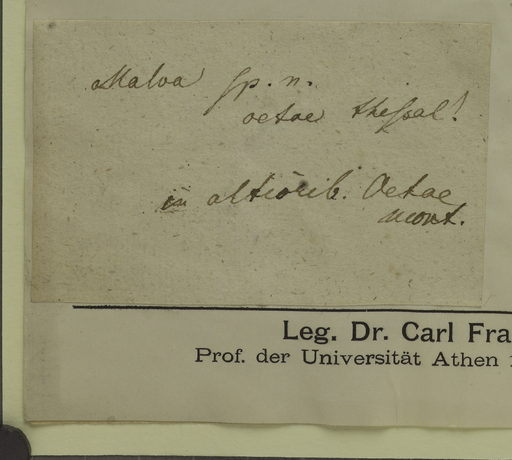 Malva sp. n.
oetae thessal!
in altiorib. Oetae
mont.
Leg. Dr. Carl Fra
Prof. der Universität Athen